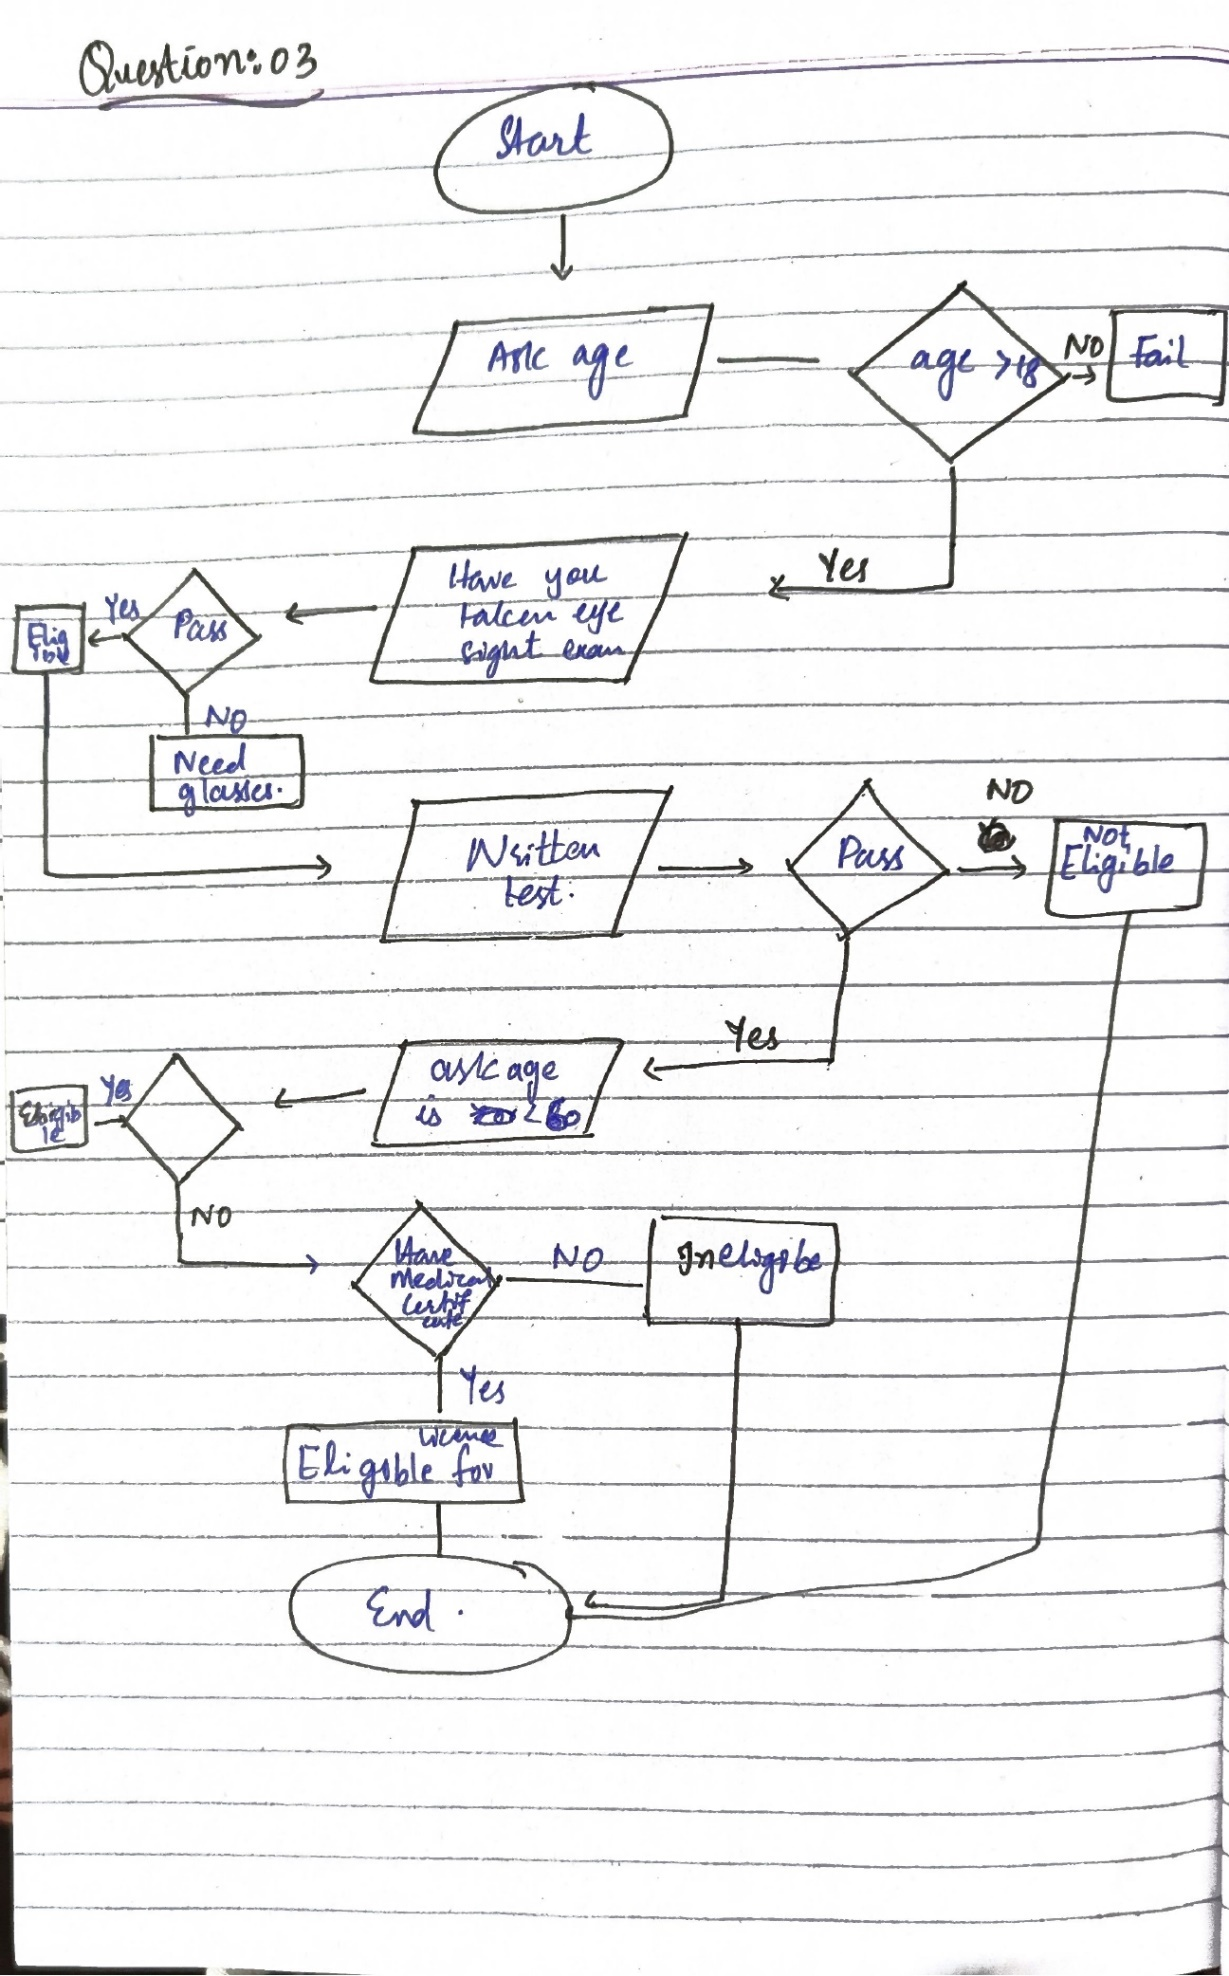 Question: 03
Start
Ask age
age >18
NO
Fail
Yes
Have you
taken eye
sight exam
Pass
Yes
Elig
ible
NO
Need
glasses.
Written
test.
Pass
NO
Not
Eligible
Yes
ask age
is < 60
Yes
Eligib
le
NO
Have
Medical
Certif
cate
NO
Ineligibe
Yes
Licence
Eligible for
End .